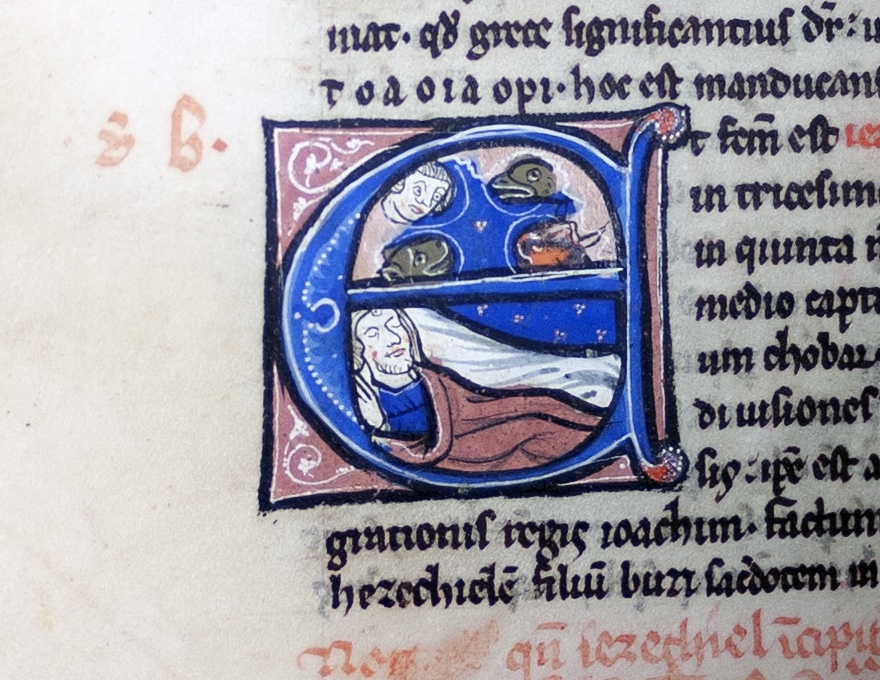 mat· qd̄ grece significantius dr̄: u
τ o a o ı a opı· hoc est manducans
Et fcm̄ est ıe
in tricesim
in quinta
medio capt
um chobar
diuisiones
ipē est a
grationis regis ioachim· factum
hezechielē filiū buzi sac̄dotem in
qn̄ iezechiel īcipit